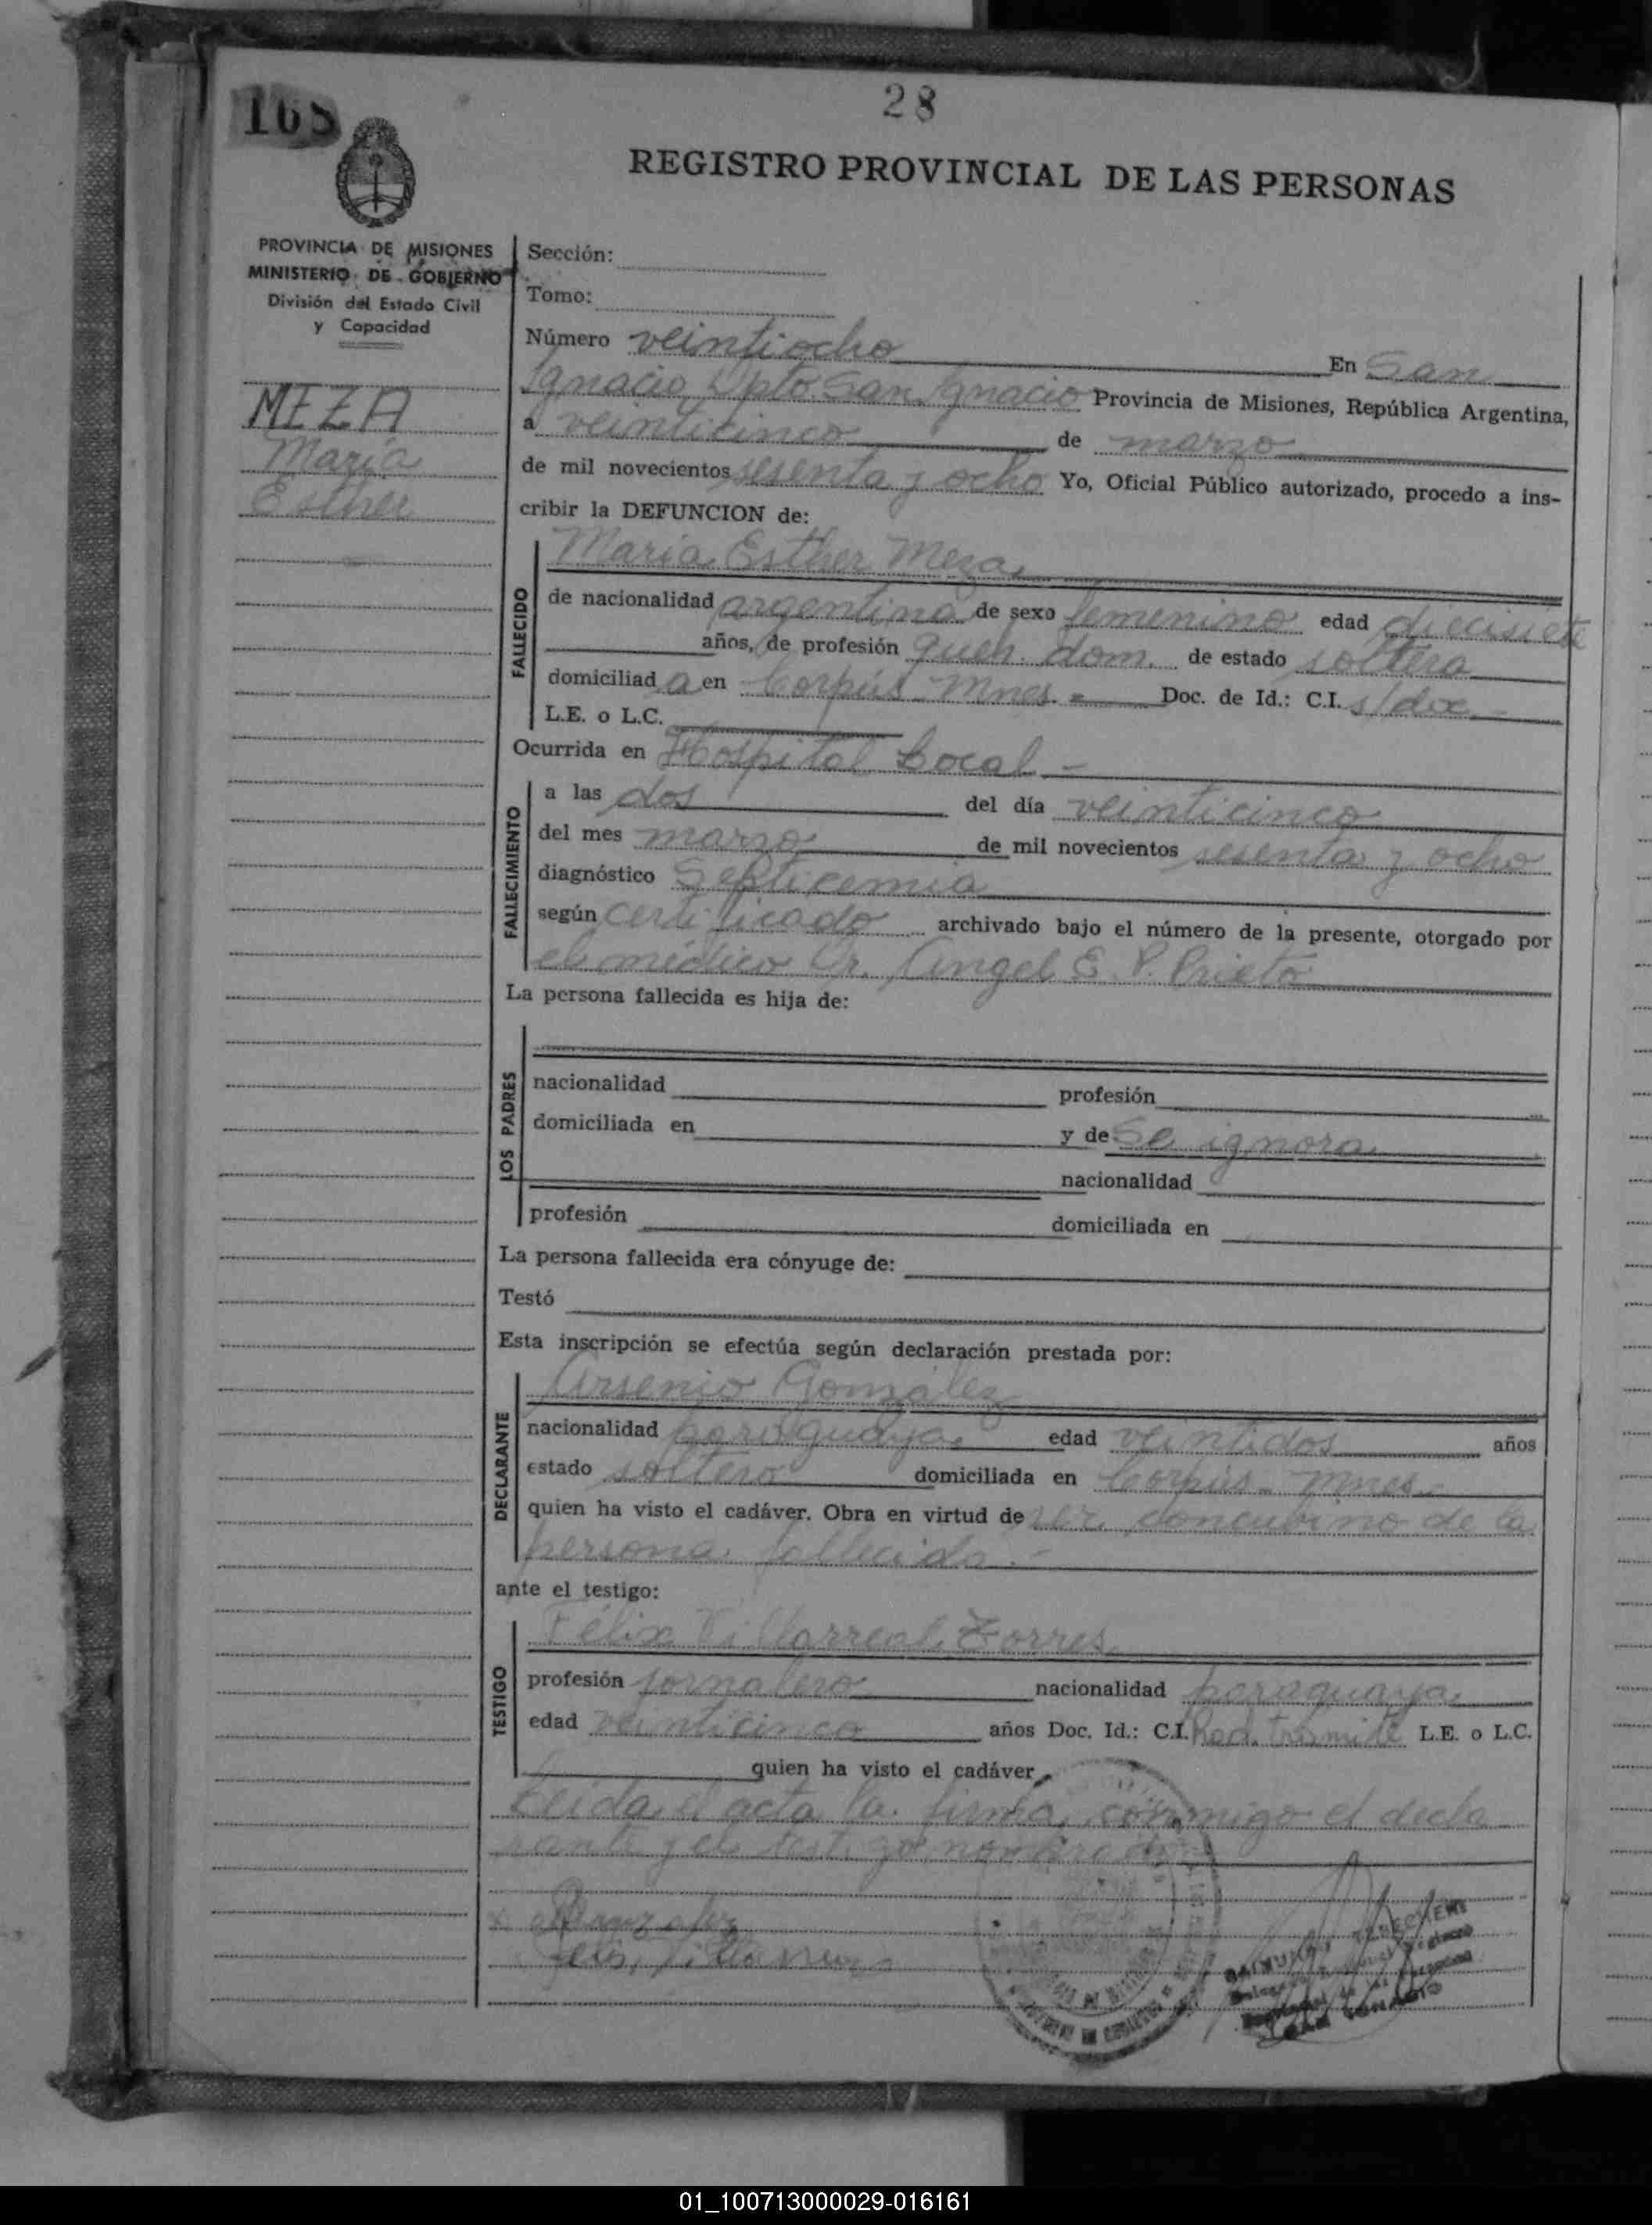 28
REGISTRO PROVINCIAL DE LAS PERSONAS
PROVINCIA DE MISIONES
MINISTERIO DE GOBIERNO
División del Estado Civil
y Capacidad
MEZA
María
Esther
Sección:
Tomo:
Número veintiocho En San
Ignacio Dpto. San Ignacio Provincia de Misiones, República Argentina,
a veinticinco de marzo
de mil novecientos sesenta y ocho Yo, Oficial Público autorizado, procedo a ins-
cribir la DEFUNCION de:
FALLECIDO
María Esther Meza
de nacionalidad argentina de sexo femenino edad diecisiete
años, de profesión queh. dom. de estado soltera
domiciliad a en Corpus - Mnes. - Doc. de Id.: C.I. s/doc -
L.E. o L.C.
Ocurrida en Hospital Local -
FALLECIMIENTO
a las dos del día veinticinco
del mes marzo de mil novecientos sesenta y ocho
diagnóstico Septicemia
según certificado archivado bajo el número de la presente, otorgado por
el médico Dr. Angel E. P. Prieto
La persona fallecida es hija de:
LOS PADRES
nacionalidad profesión
domiciliada en y de Se ignora
nacionalidad
profesión domiciliada en
La persona fallecida era cónyuge de:
Testó
Esta inscripción se efectúa según declaración prestada por:
DECLARANTE
Arsenio González
nacionalidad paraguaya edad veintidos años
estado soltero domiciliada en Corpus - Mnes.
quien ha visto el cadáver. Obra en virtud de ser concubino de la
persona fallecida. -
ante el testigo:
TESTIGO
Félix Villarreal Torres
profesión jornalero nacionalidad paraguaya
edad veinticinco años Doc. Id.: C.I. Rad. Tramite L.E. o L.C.
quien ha visto el cadáver.
Leida el acta la firma conmigo el decla
rante y el testigo nombrado
SAN IGNACIO
01_100713000029-016161